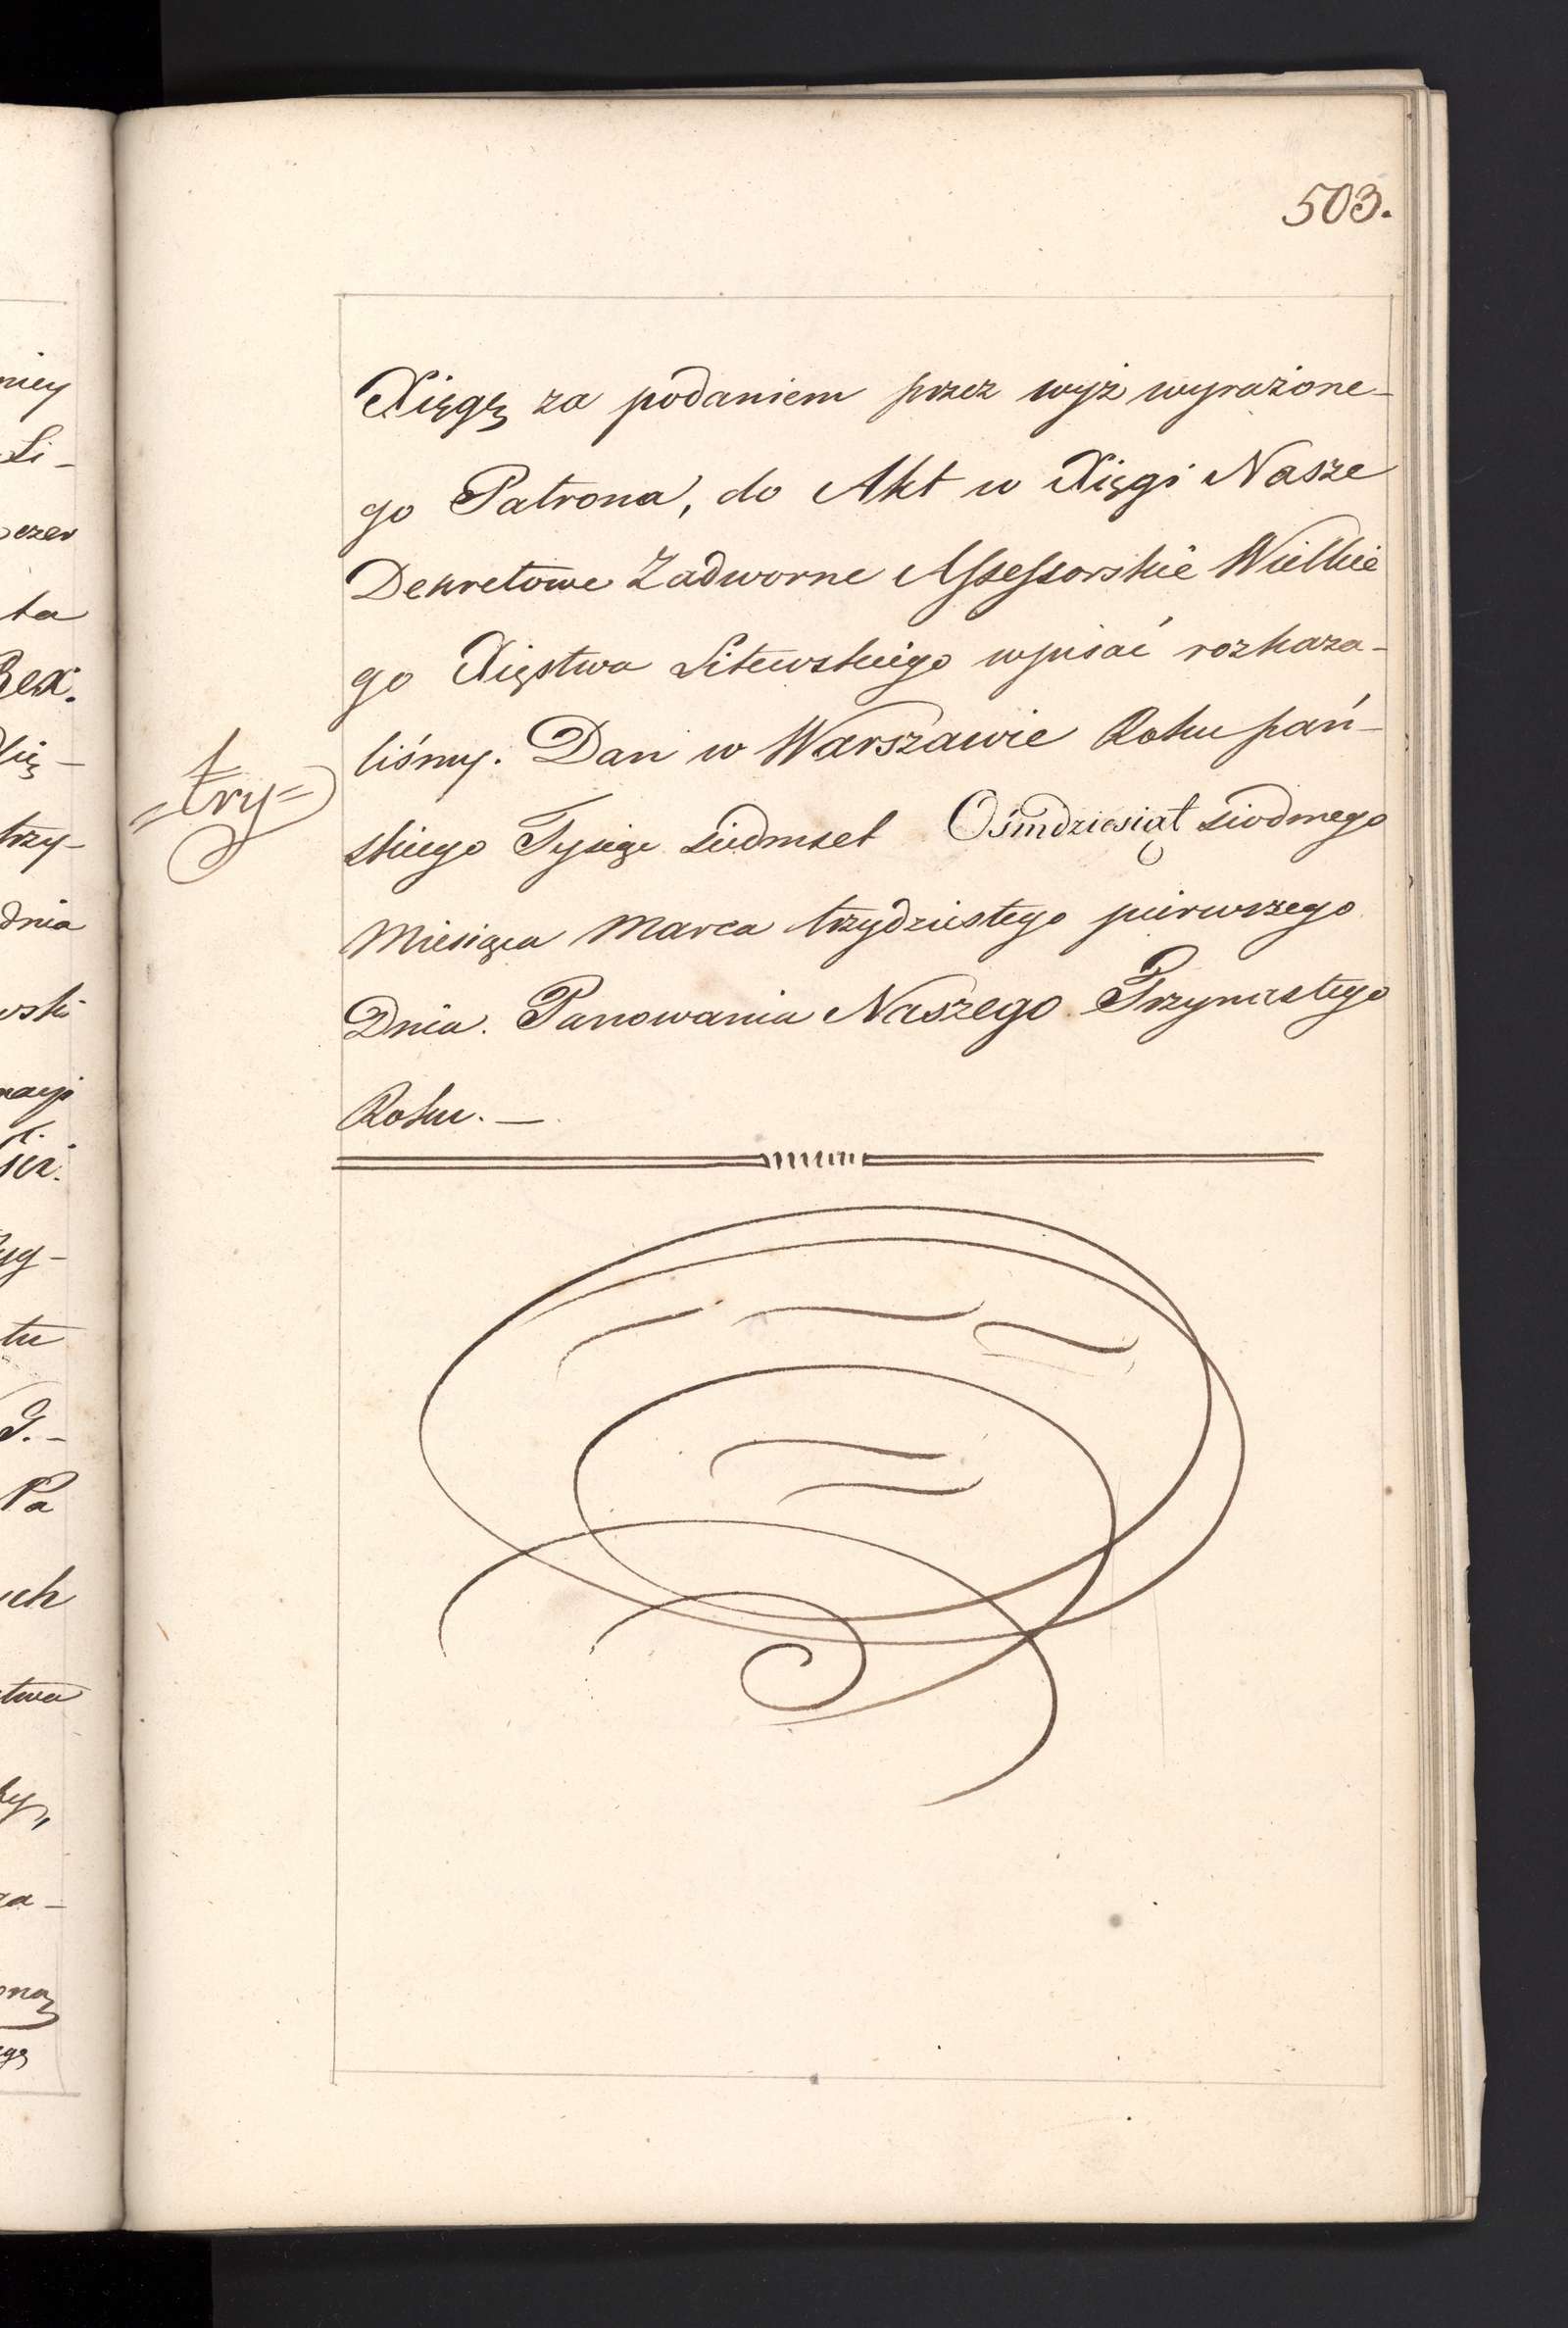 503.
Xięgę za podaniem przez wyż wyrażone-
go Patrona, do Akt w Xięgi Nasze
Dekretowe Zadworne Assessorskie Wielkie
go Xięstwa Litewskiego wpisać rozkaza-
liśmy. Dan w Warszawie Roku pań-
skiego Tysiąc siedmset Ośmdziesiąt siodmego
Miesiąca Marca trzydziestego pierwszego
Dnia. Panowania Naszego Trzynastego
Roku. —
=try=
niey
Li-
czew
ta
Rex.
trzy-
dnia
wski
tu
J.-
Pa
ych
stwa
za-